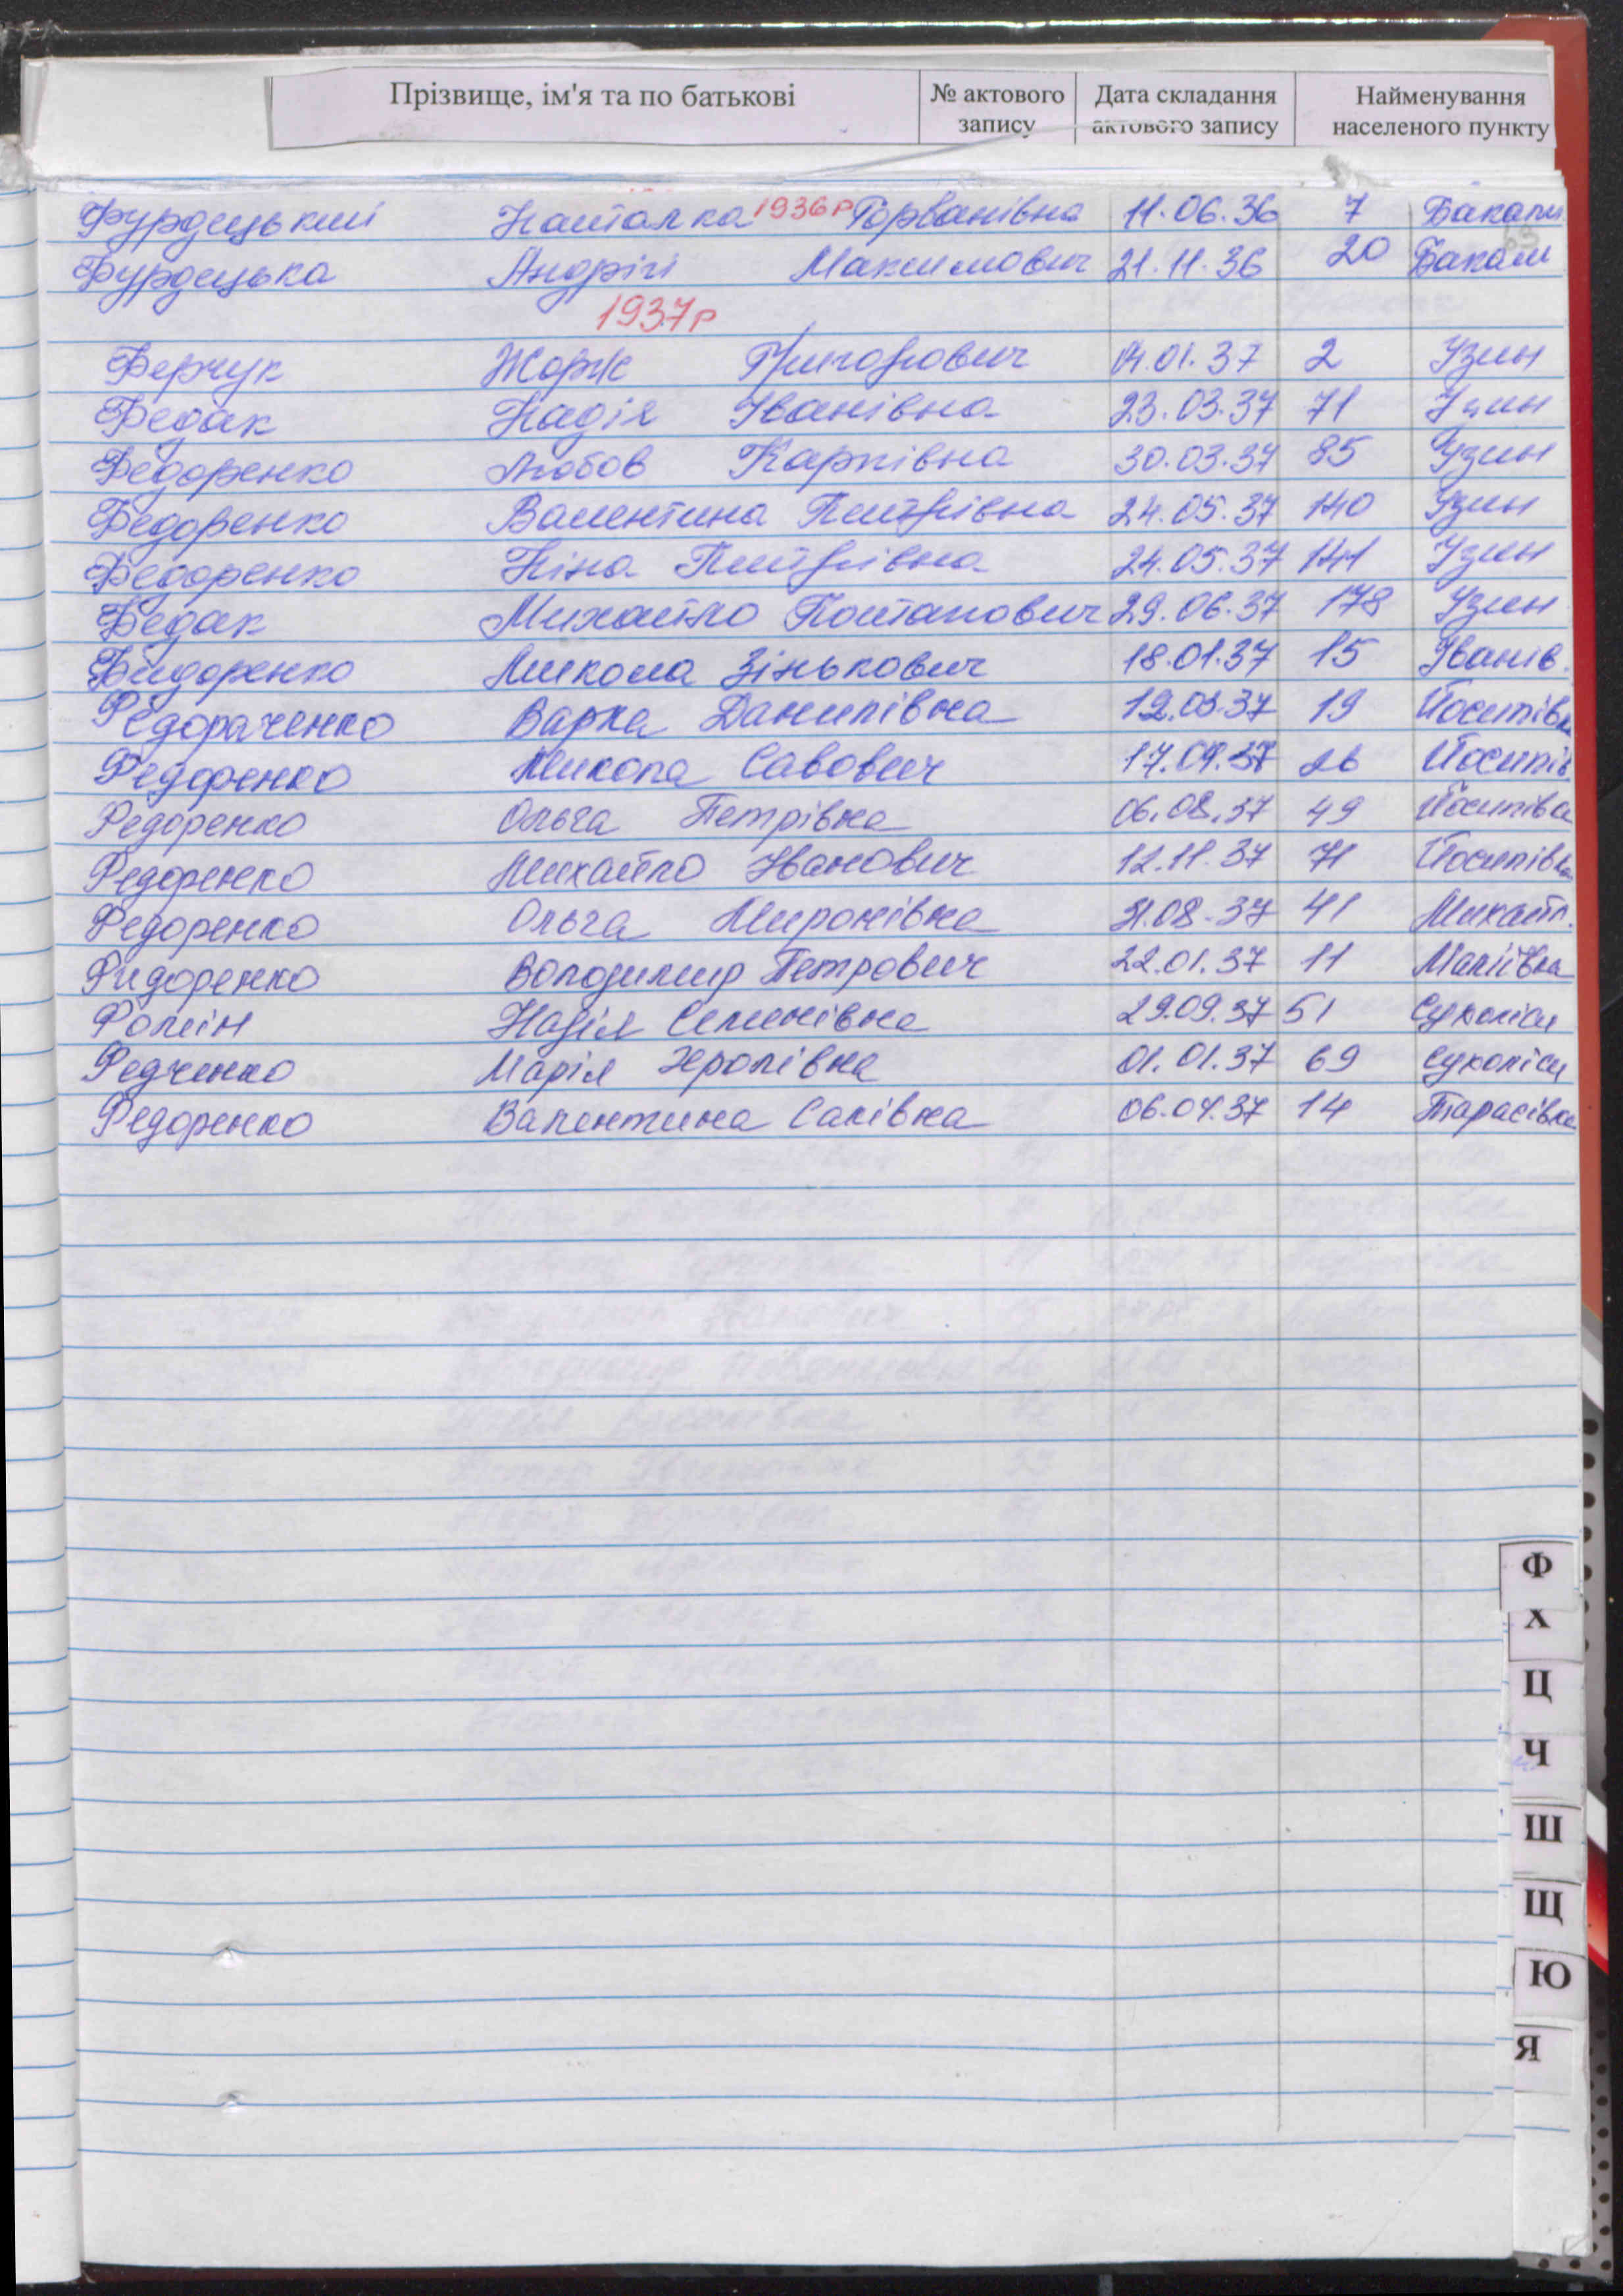 Прізвище, ім'я та по батькові № актового запису Дата складання актового запису Найменування населеного пункту
1936р
Фурдецький Наталка 11.06.36 7 Бакали
Фурдецька Андрій Максимович 21.11.36 20 Бакали
1937р
Ферчук Жорж Григорович 14.01.37 2 Узин
Федак Надія Іванівна 23.03.37 71 Узин
Федоренко Любов Карпівна 30.03.37 85 Узин
Федоренко Валентина Пилипівна 24.05.37 140 Узин
Федоренко Ніна Пилипівна 24.05.37 141 Узин
Федак Михайло Потапович 29.06.37 178 Узин
Фидоренко Микола Зінькович 18.01.37 15 Іванів.
Федораченко Варка Данилівна 12.03.37 19 Йосипівка
Федоренко Микола Савович 17.04.37 26 Йосипів
Федоренко Ольга Петрівна 06.08.37 49 Йосипівка
Федоренко Михайло Іванович 12.11.37 71 Йосипівка
Федоренко Ольга Миронівна 31.08.37 41 Михайл.
Фидоренко Володимир Петрович 22.01.37 11 Маліївка
Фомін Надія Семенівна 29.09.37 51 Сухоліси
Федченко Марія 01.01.37 69 Сухоліси
Федоренко Валентина Савівна 06.04.37 14 Тарасівка
Ф
Х
Ц
Ч
Ш
Щ
Ю
Я